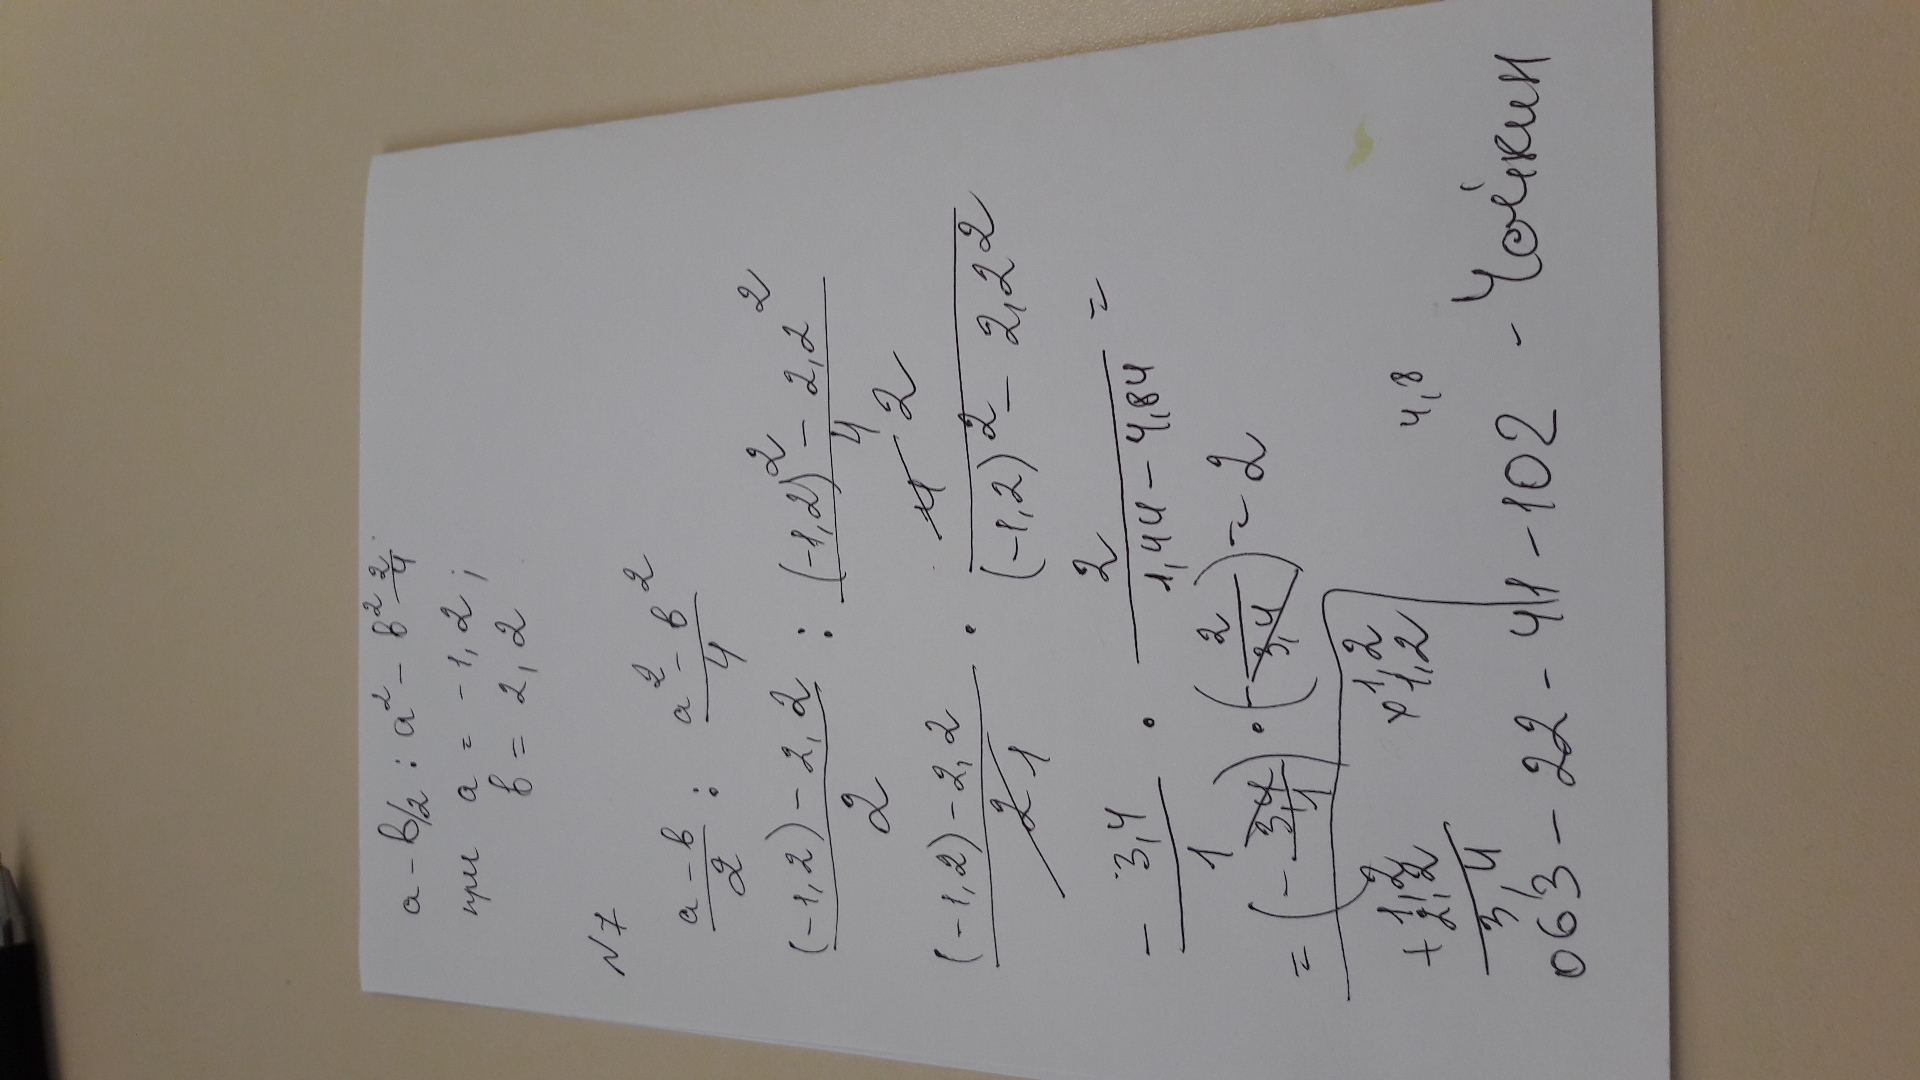 a - b/2 : a² - b² 2/4
при a = -1,2 ;
b = 2,2
N7
(a - b)/2 : (a² - b²)/4
((-1,2) - 2,2)/2 : ((-1,2)² - 2,2²)/4
((-1,2) - 2,2)/2 1 · 4 2/((-1,2)² - 2,2²)
- 3,4/1 · 2/(1,44 - 4,84) =
= (- 3,4/1) · (- 2/3,4) = 2
+ 1,2 × 1,2 4,8
2,2 1,2
3,4
063 - 22 - 41 - 102 - Чойкин